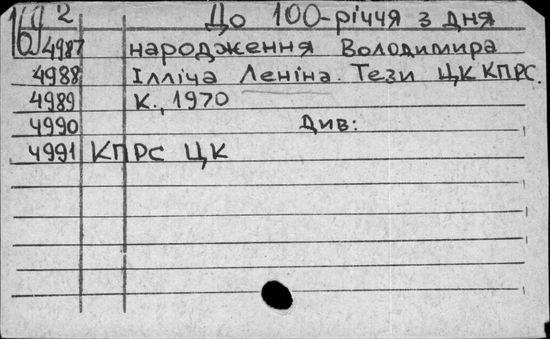 2 До 100-річчя з дня
4987 народження Володимира
4988 Ілліча Леніна. Тези ЦК КПРС.
4989 К., 1970
4990 Див:
4991 КПРС ЦК